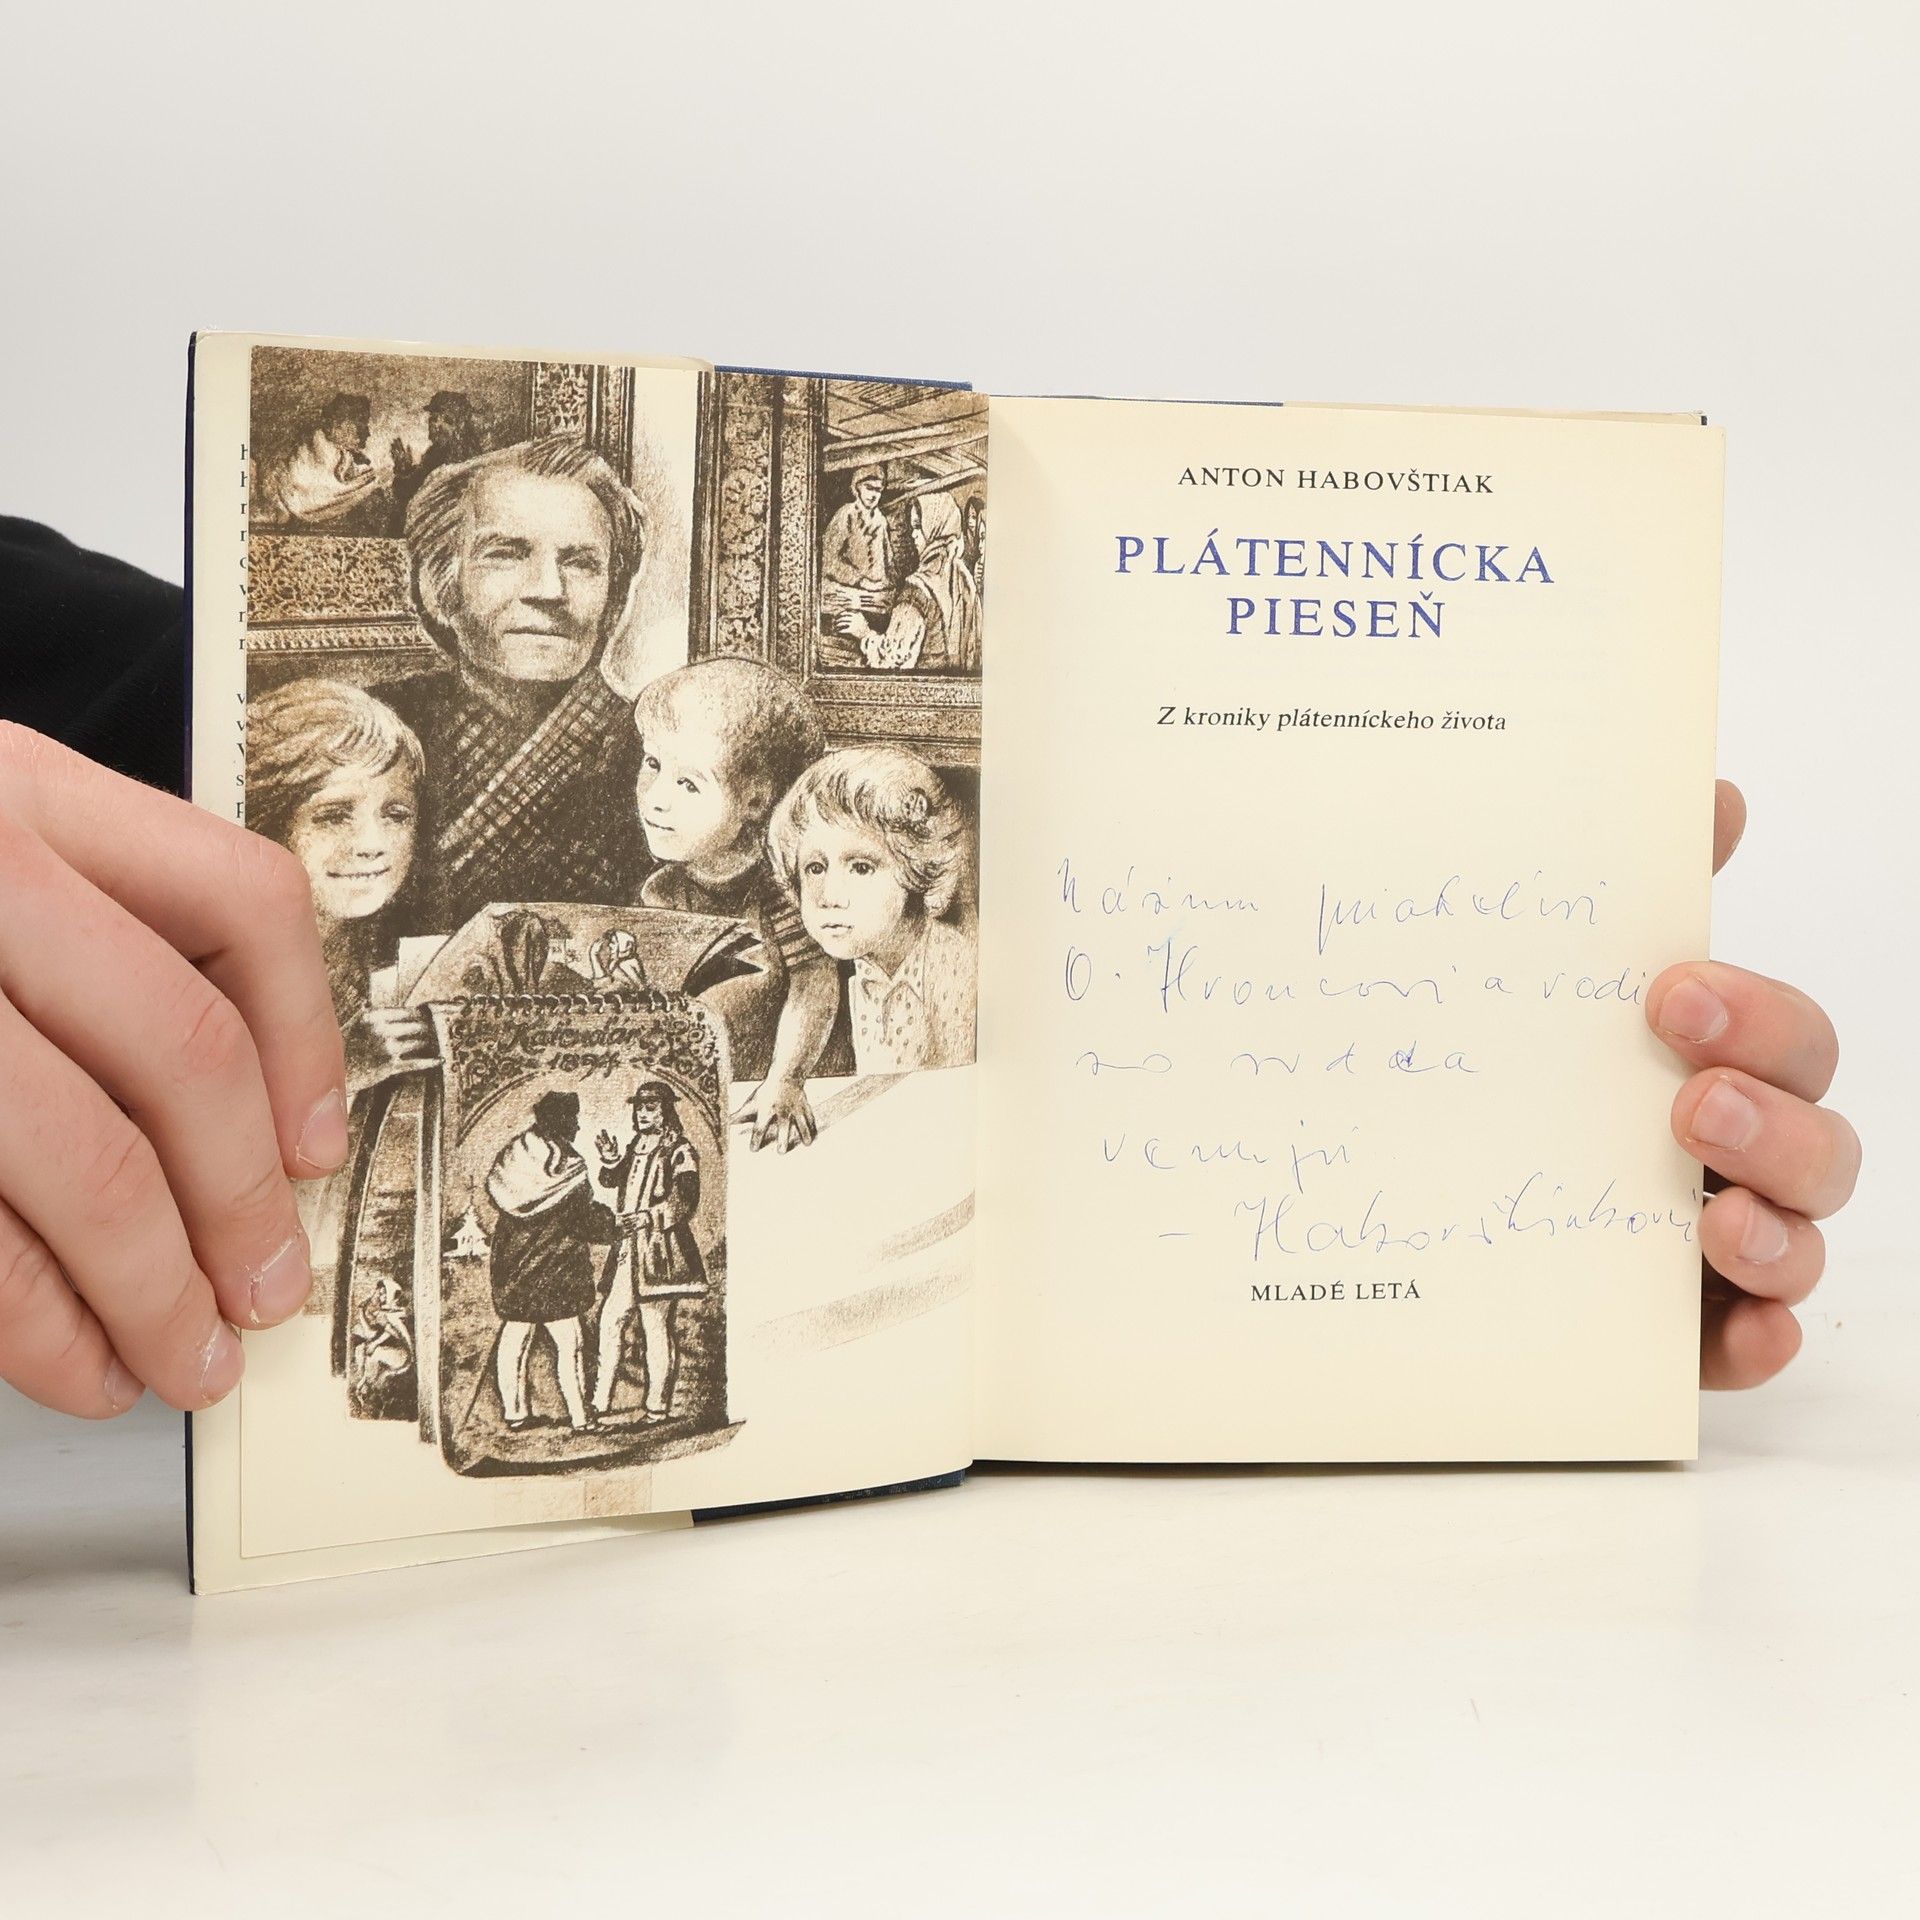 Kalendár
1894
ANTON HABOVŠTIAK
PLÁTENNÍCKA
PIESEŇ
Z kroniky plátenníckeho života
Nášmu priateľovi
O. Hroncovi a rodi
zo srdca
venujú
- Habovštiakovci
MLADÉ LETÁ